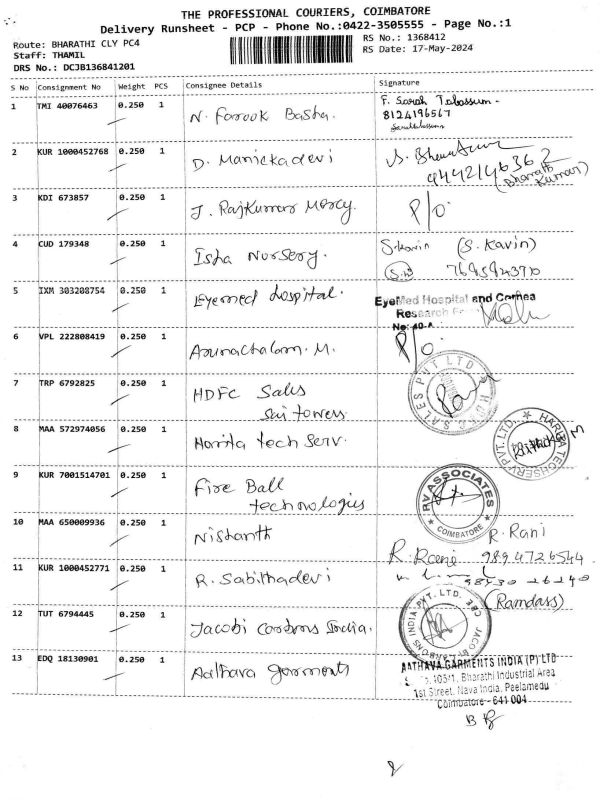 THE PROFESSIONAL COURIERS, COIMBATORE
Delivery Runsheet - PCP - Phone No.:0422-3505555 - Page No.:1
Route: BHARATHI CLY PC4
Staff: THAMIL
DRS No.: DCJB136841201
RS No.: 1368412
RS Date: 17-May-2024
S No Consignment No Weight PCS Consignee Details Signature
1 TMI 40076463 0.250 1 N. Farook Basha. F. Sarah Tabassum.
8124196567
2 KUR 1000452768 0.250 1 D. Manickadevi
9442146362
(Bharath Kumar)
3 KDI 673857 0.250 1 J. Rajkumar Mercy. P/o.
4 CUD 179348 0.250 1 Isha Nursery. S.kavin (S. Kavin)
5 IXM 303208754 0.250 1 Eyemed hospital. EyeMed Hospital and Cornea
Research
No: 40-A
6 VPL 222808419 0.250 1 Arunachalam. M. P/o.
7 TRP 6792825 0.250 1 HDFC Sales
Sri towers
HDFC SALES PVT LTD
8 MAA 572974056 0.250 1 Harita tech Serv.
HARITA TECHSERV PVT. LTD.
9 KUR 7001514701 0.250 1 Fire Ball
technologies
RV ASSOCIATES
COIMBATORE
10 MAA 650009936 0.250 1 Nishanth R. Rani
R. Rani 9894726544
11 KUR 1000452771 0.250 1 R. Sabithadevi
98430 26240
(Ramdass)
12 TUT 6794445 0.250 1 Jacobi Carbons India.
JACOBI CARBONS INDIA PVT. LTD. CBE
13 EDQ 18130901 0.250 1 Aathava garments
AATHAVA GARMENTS INDIA (P) LTD
Bharathi Industrial Area
1st Street, Nava India, Peelamedu
Coimbatore - 641 004